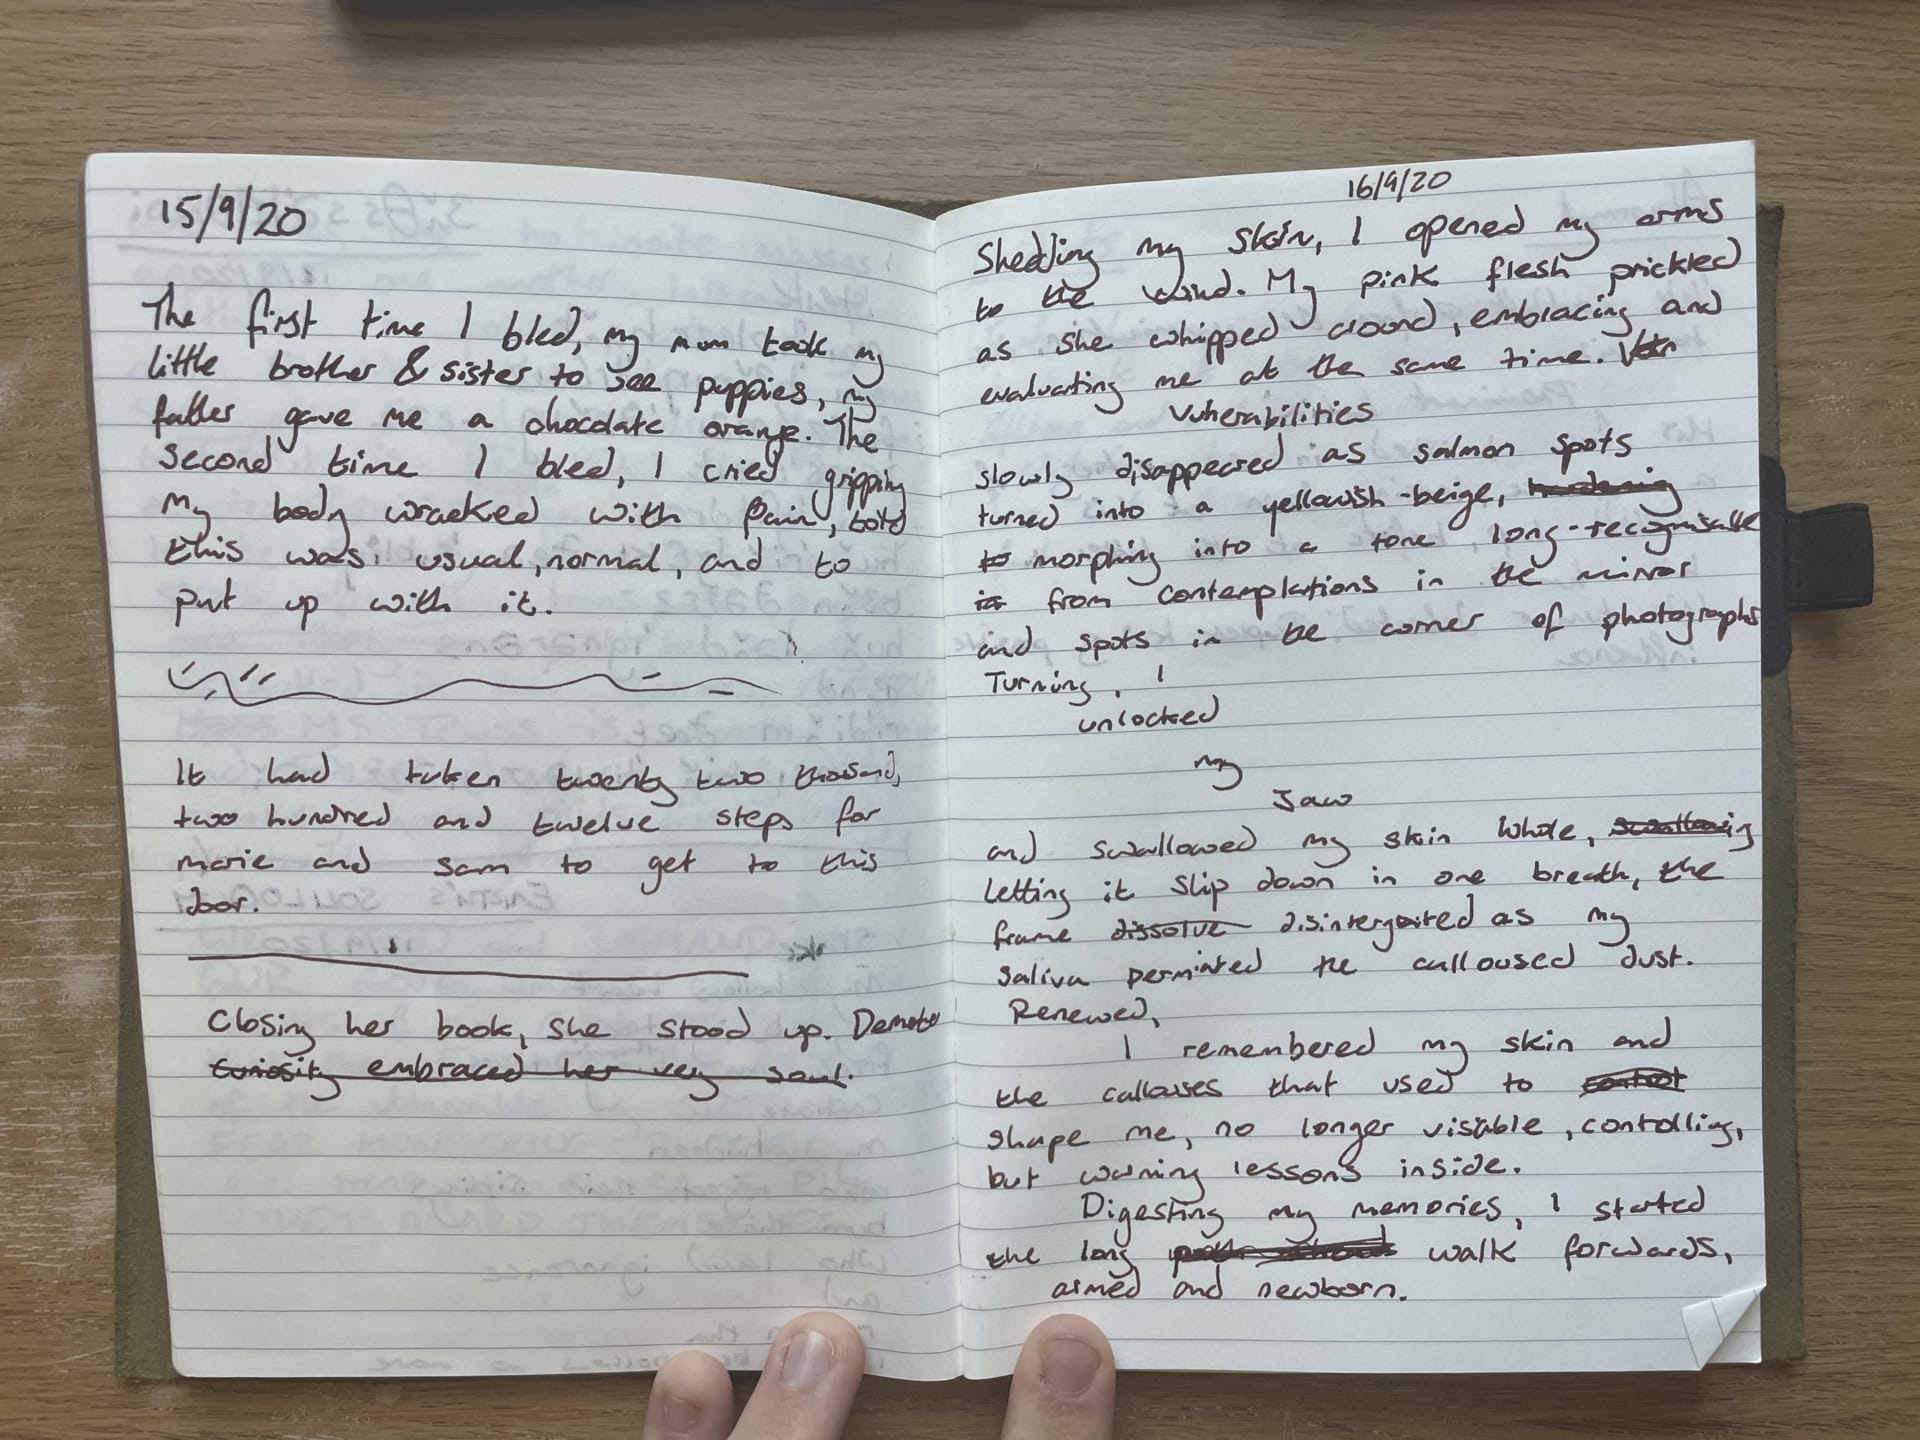 15/9/20
The first time I bled, my mum took my
little brother & sister to see puppies, my
father gave me a chocolate orange. The
second time I bled, I cried gripping
my body wracked with pain, told
this was usual, normal, and to
put up with it.
It had taken twenty two thousand,
two hundred and twelve steps for
marie and sam to get to this
door.
Closing her book, she stood up.
curiosity embraced her very soul.
16/9/20
Shedding my skin, I opened my arms
to the wind. My pink flesh prickled
as she whipped around, embracing and
evaluating me at the same time.
Vulnerabilities
slowly disappeared as salmon spots
turned into a yellowish-beige, hardening
to morphing into a tone, long-recognisable
from contemplations in the mirror
and spots in the corner of photographs
Turning, I
unlocked
my
Jaw
and swallowed my skin whole, swallowing
letting it slip down in one breath, the
frame dissolve disintergrated as my
saliva perminted the calloused dust.
Renewed,
I remembered my skin and
the callouses that used to control
shape me, no longer visible, contolling,
but warning lessons inside.
Digesting my memories, I started
the long walk forwards,
armed and newborn.